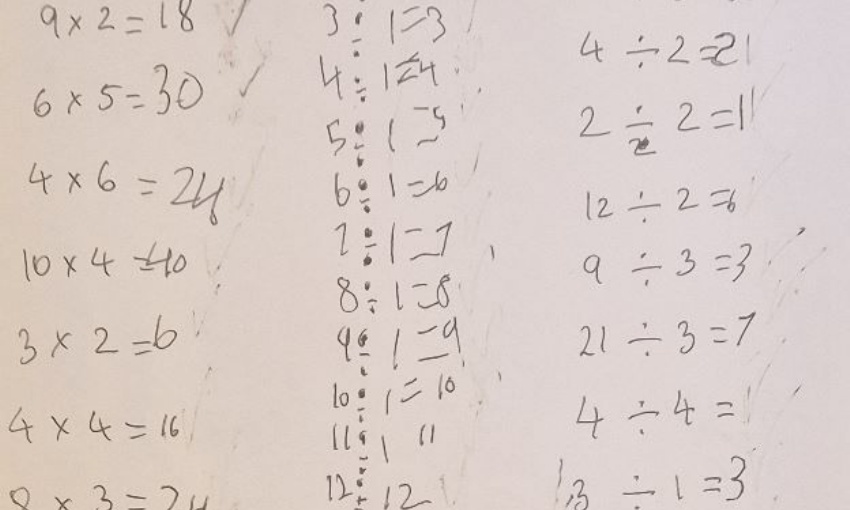 9 × 2 = 18
6 × 5 = 30
4 × 6 = 24
10 × 4 = 40
3 × 2 = 6
4 × 4 = 16
8 × 3 = 24
3 ÷ 1 = 3
4 ÷ 1 = 4
5 ÷ 1 = 5
6 ÷ 1 = 6
7 ÷ 1 = 7
8 ÷ 1 = 8
9 ÷ 1 = 9
10 ÷ 1 = 10
11 ÷ 1 11
12 ÷ 12
4 ÷ 2 = 2
2 ÷ 2 = 1
12 ÷ 2 = 6
9 ÷ 3 = 3
21 ÷ 3 = 7
4 ÷ 4 = 1
3 ÷ 1 = 3